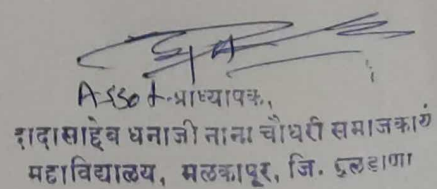 Asso.प्राध्यापक,
दादासाहेब धनाजी नाना चौधरी समाजकार्य
महाविद्यालय, मलकापूर, जि. बुलडाणा